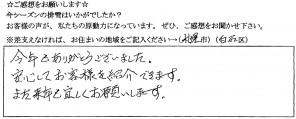 ☆ご感想をお願いします☆
今シーズンの排雪はいかがでしたか?
お客様の声が、私たちの原動力になっています。ぜひ、ご感想をお聞かせ下さい。
※差支えなければ、お住まいの地域をご記入ください→(札幌市)(白石区)
今年もありがとうございました。
安心してお客様を紹介できます。
また来年も宜しくお願いします。